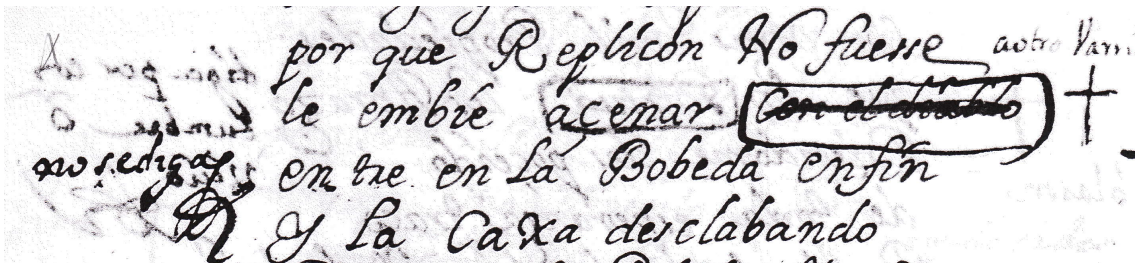 por que Replicon No fuesse aotro Varri
le embie açenar con el diablo
no se diga entre en la Bobeda enfin
y la Caxa desclabando